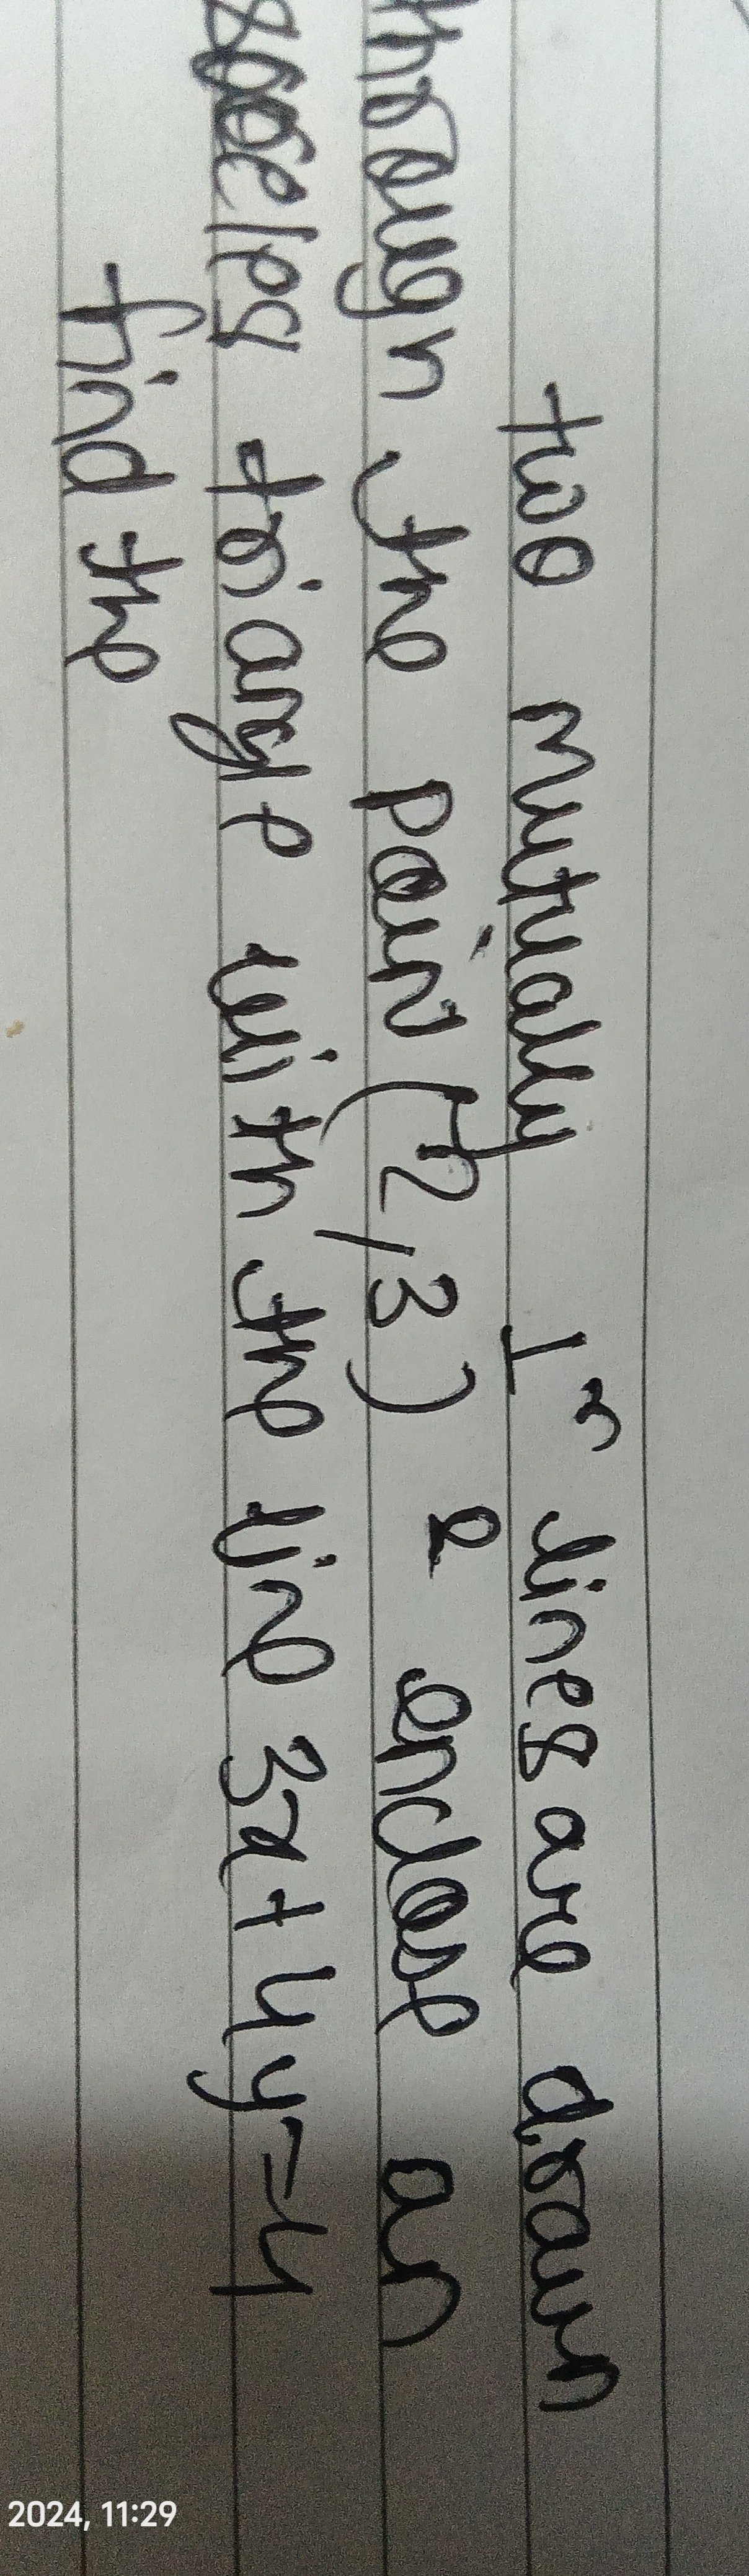 two mutually ⊥r lines are drawn
through the poin (-2,3) & enclose an
triangle with the line 3x+4y=4
find the
2024, 11:29